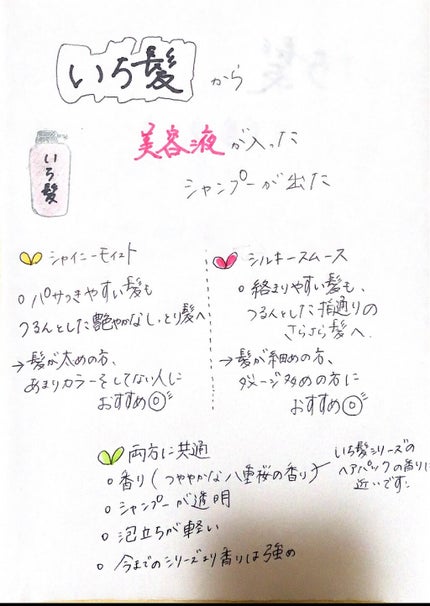 いち髪から
いち髪
美容液が入った
シャンプーが出た
シャイニーモイスト
○パサつきやすい髪も
つるんとした艶やかなしっとり髪へ
→髪が太めの方、
あまりカラーをしてない人に
おすすめ◎
シルキースムース
○絡まりやすい髪も、
つるんとした指通りの
さらさら髪へ
→髪が細めの方、
ダメージ多めの方に
おすすめ◎
両方に共通
○香り(つややかな八重桜の香り)
いち髪シリーズの
ヘアパックの香りに
近いです
○シャンプーが透明
○泡立ちが軽い
○今までのシリーズより香りは強め